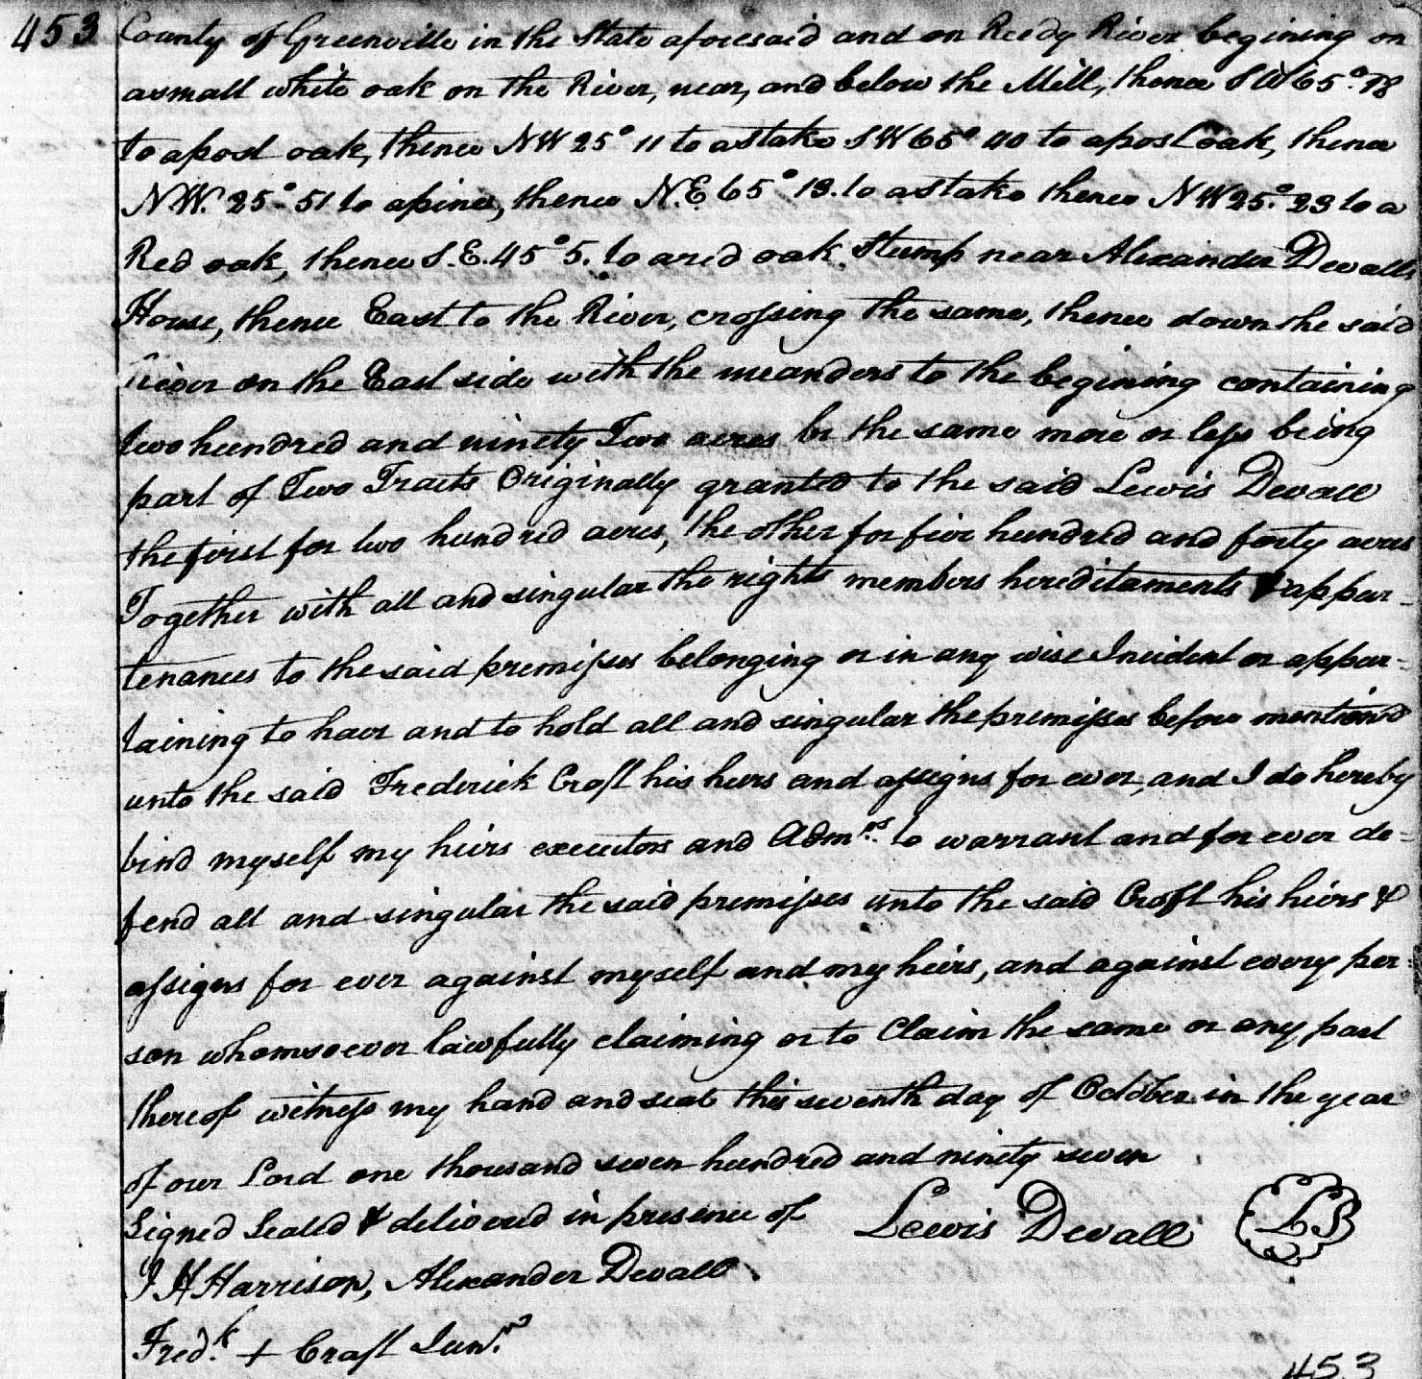 453 County of Greenville in the State aforesaid and on Reedy River begining on
a small white oak on the River, near, and below the Mill, thence S W 65° 78
to a post oak, thence N W 25° 11 to a stake S W 65° 40 to a post oak, thence
N W. 25° 51 to a pine, thence N. E 65° 13. to a stake thence N W 25.° 23 to a
Red oak, thence S. E. 45° 5. to a red oak Stump near Alexander Devalls
House, thence East to the River, crossing the same, thence down the said
River on the East side with the meanders to the begining containing
two hundred and ninety Two acres be the same more or less being
part of Two Tracts Originally granted to the said Lewis Devall
the first for two hundred acres, the other for five hundred and forty acres
Together with all and singular the rights members hereditaments & appur-
tenances to the said premisses belonging or in any wise Incident or appur-
taining to have and to hold all and singular the premisses before mentiond
unto the said Frederick Croft his heirs and assigns for ever, and I do hereby
bind myself my heirs executors and Adm.rs to warrant and for ever de-
fend all and singular the said premisses unto the said Croft his heirs &
assigns for ever against myself and my heirs, and against every per-
son whomsoever lawfully claiming or to Claim the same or any part
thereof witness my hand and seal this seventh day of October in the year
of our Lord one thousand seven hundred and ninety seven
Signed Sealed & delivered in presence of Lewis Devall LS
J H Harrison, Alexander Devall
Fred.k + Craft Jun.r
453